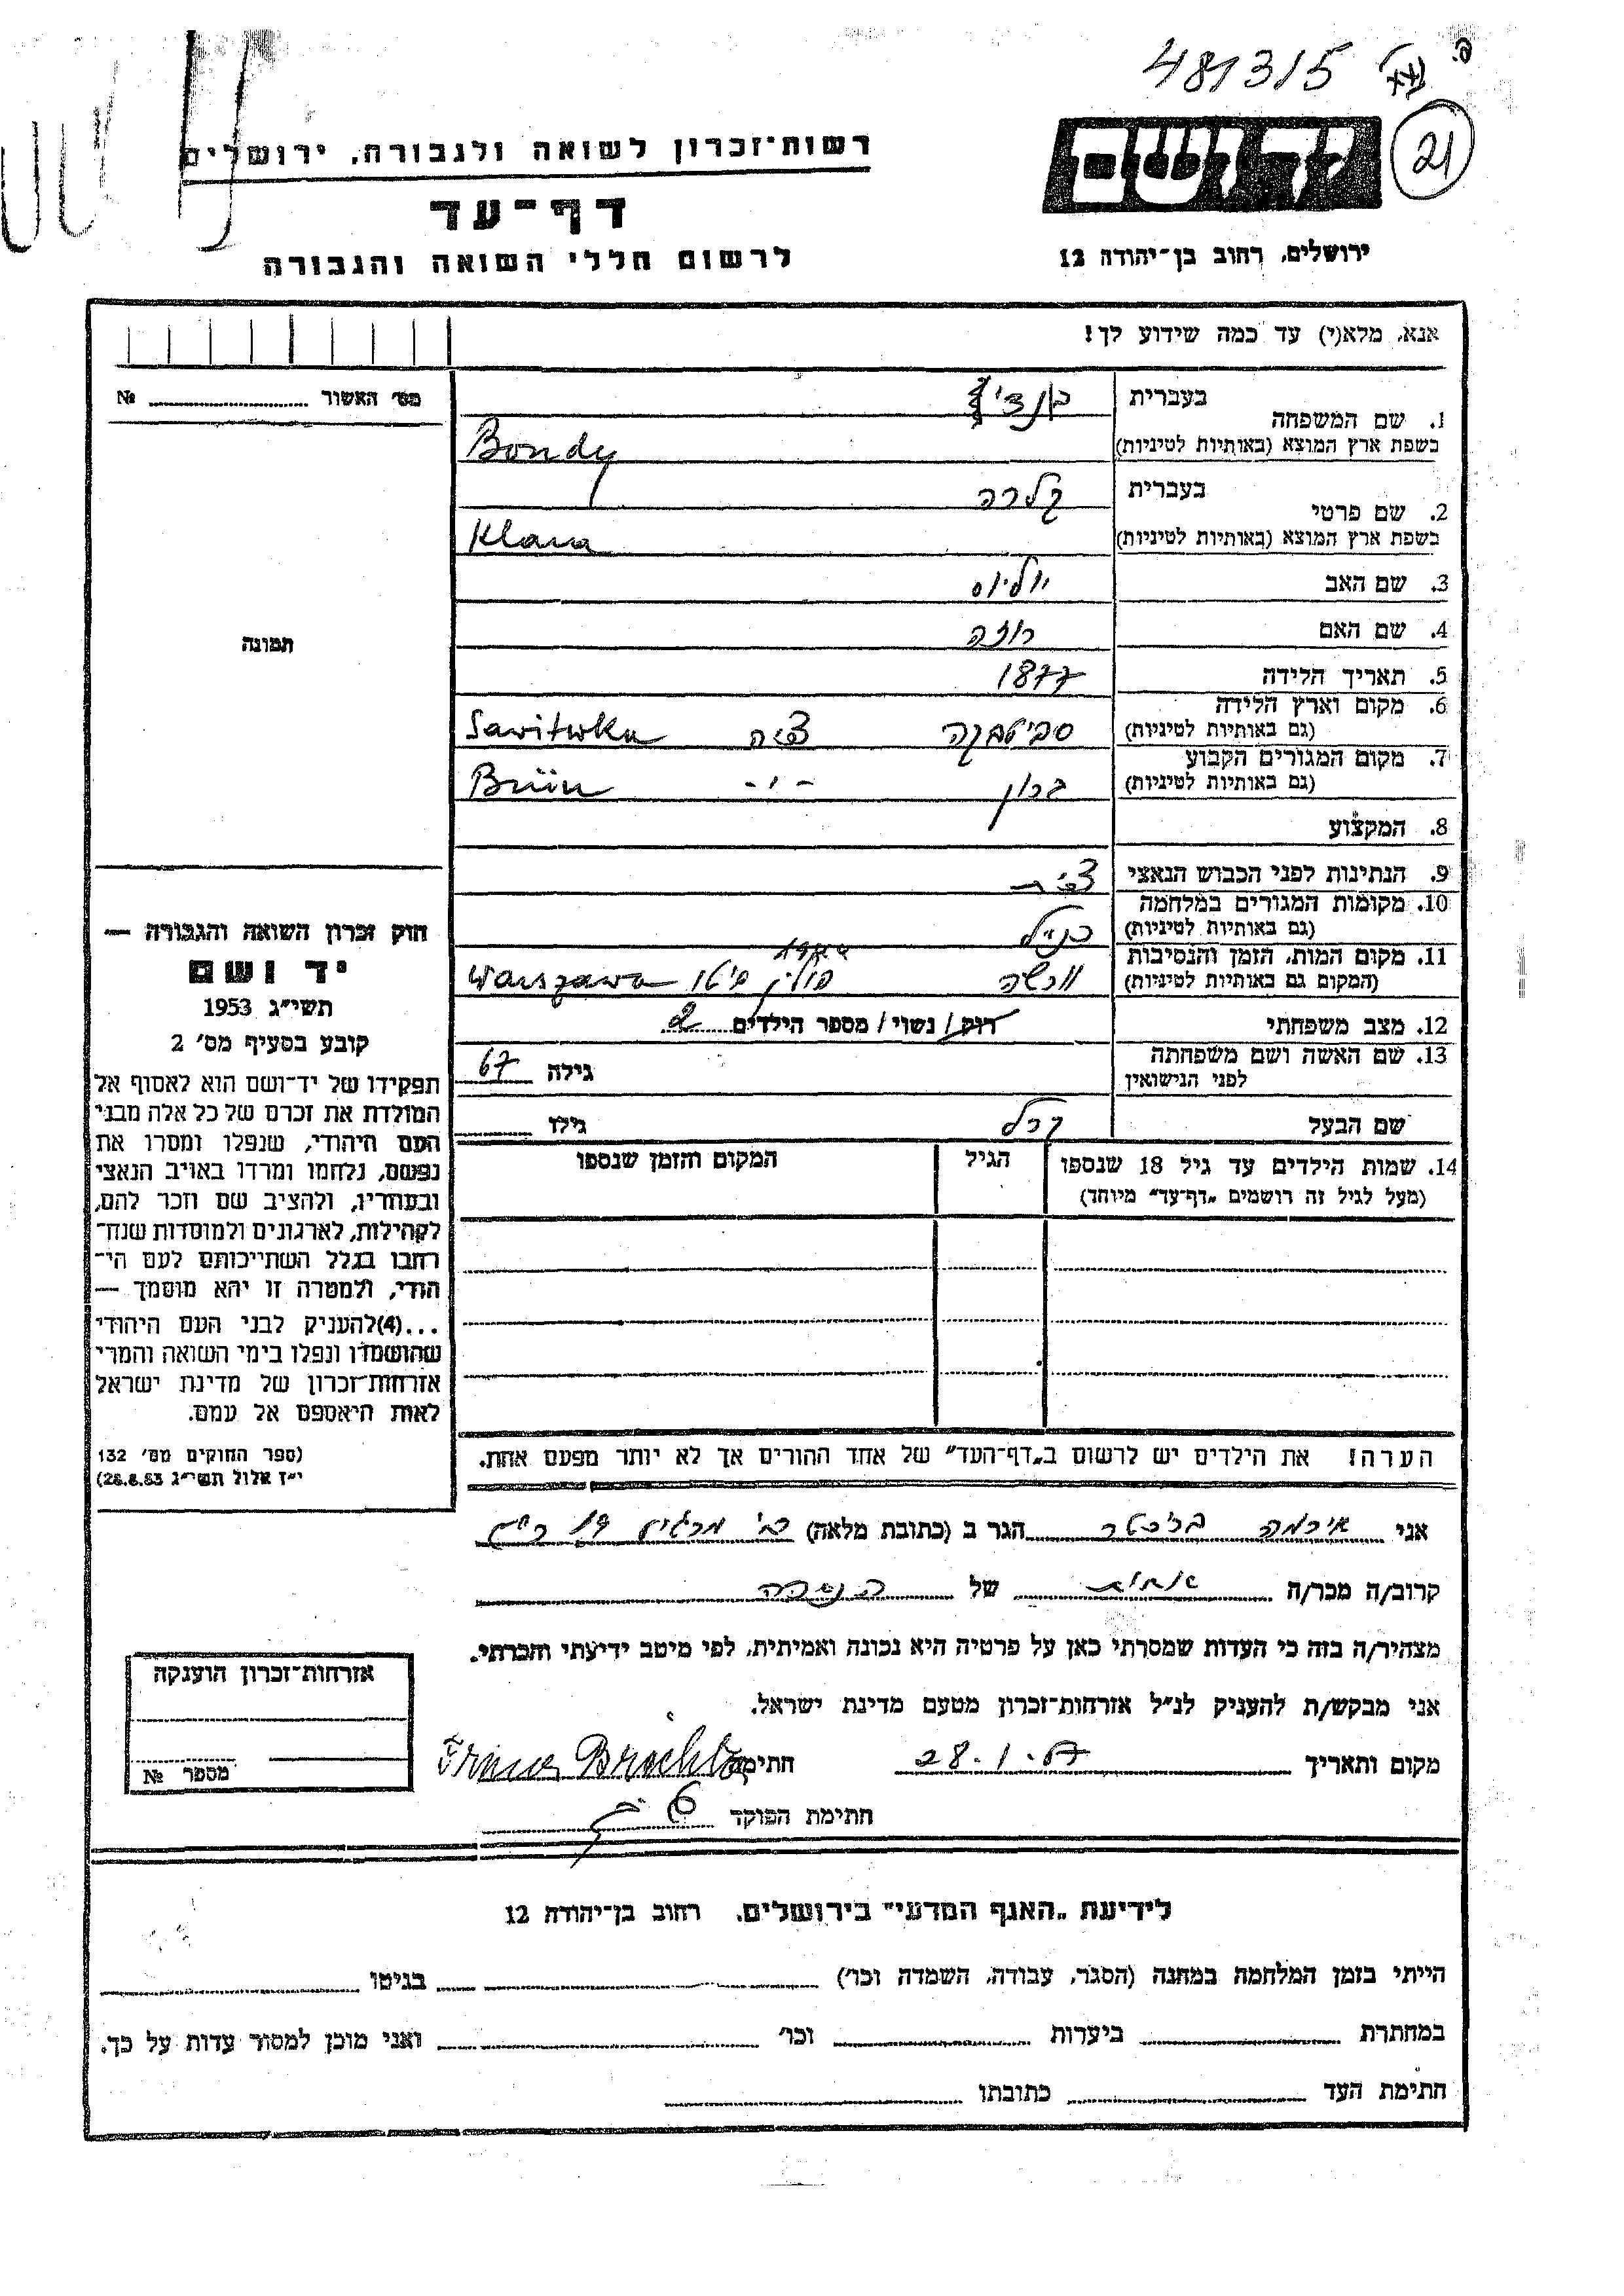 481315
21
יד ושם
ירושלים, רחוב בן־יהודה 12
רשות־זכרון לשואה ולגבורה, ירושלים
דף־עד
לרשום חללי השואה והגבורה
אנא, מלא(י) עד כמה שידוע לך!
מס׳ האשור № 
1. שם המשפחה
בעברית
בשפת ארץ המוצא (באותיות לטיניות) Bondy
2. שם פרטי
בעברית קלרה
בשפת ארץ המוצא (באותיות לטיניות) Klara
3. שם האב יוליוס
4. שם האם רוזה
5. תאריך הלידה 1877
6. מקום וארץ הלידה
(גם באותיות לטיניות) סביטבקה צ׳כיה Sawitwka
7. מקום המגורים הקבוע
(גם באותיות לטיניות) ברון -״- Brün
8. המקצוע
9. הנתינות לפני הכבוש הנאצי צ׳כית
10. מקומות המגורים במלחמה
(גם באותיות לטיניות) כנ״ל
11. מקום המות, הזמן והנסיבות
(המקום גם באותיות לטיניות) ורשה פולין גיטו Warszawa
12. מצב משפחתי רווק/ נשוי/ מספר הילדים 2
13. שם האשה ושם משפחתה
לפני הנישואין גילה 67
שם הבעל קרל גילו
14. שמות הילדים עד גיל 18 שנספו
(מעל לגיל זה רושמים „דף־עד״ מיוחד)
הגיל
המקום והזמן שנספו
הערה! את הילדים יש לרשום ב„דף־העד״ של אחד ההורים אך לא יותר מפעם אחת.
תמונה
חוק זכרון השואה והגבורה —
יד ושם
תשי״ג 1953
קובע בסעיף מס׳ 2
תפקידו של יד־ושם הוא לאסוף אל
המולדת את זכרם של כל אלה מבני
העם היהודי, שנפלו ומסרו את
נפשם, נלחמו ומרדו באויב הנאצי
ובעוזריו, ולהציב שם וזכר להם,
לקהילות, לארגונים ולמוסדות שנח־
רבו בגלל השתייכותם לעם הי־
הודי, ולמטרה זו יהא מוסמך —
...(4)להעניק לבני העם היהודי
שהושמדו ונפלו בימי השואה והמרי
אזרחות־זכרון של מדינת ישראל
לאות היאספם אל עמם.
(ספר החוקים מס׳ 132
י״ז אלול תשי״ג 28.8.53)
אני אירמה ברכטר הגר ב (כתובת מלאה)
קרוב/ה מכר/ה אחות של הנספה
מצהיר/ה בזה כי העדות שמסרתי כאן על פרטיה היא נכונה ואמיתית, לפי מיטב ידיעתי והכרתי.
אני מבקש/ת להעניק לנ״ל אזרחות־זכרון מטעם מדינת ישראל.
מקום ותאריך 28.1.57 חתימה
חתימת הפוקד
אזרחות־זכרון הוענקה
מספר №
לידיעת „האגף המדעי״ בירושלים, רחוב בן־יהודה 12
הייתי בזמן המלחמה במחנה (הסגר, עבודה, השמדה וכו׳) בגיטו
במחתרת ביערות וכו׳ ואני מוכן למסור עדות על כך.
חתימת העד כתובתו